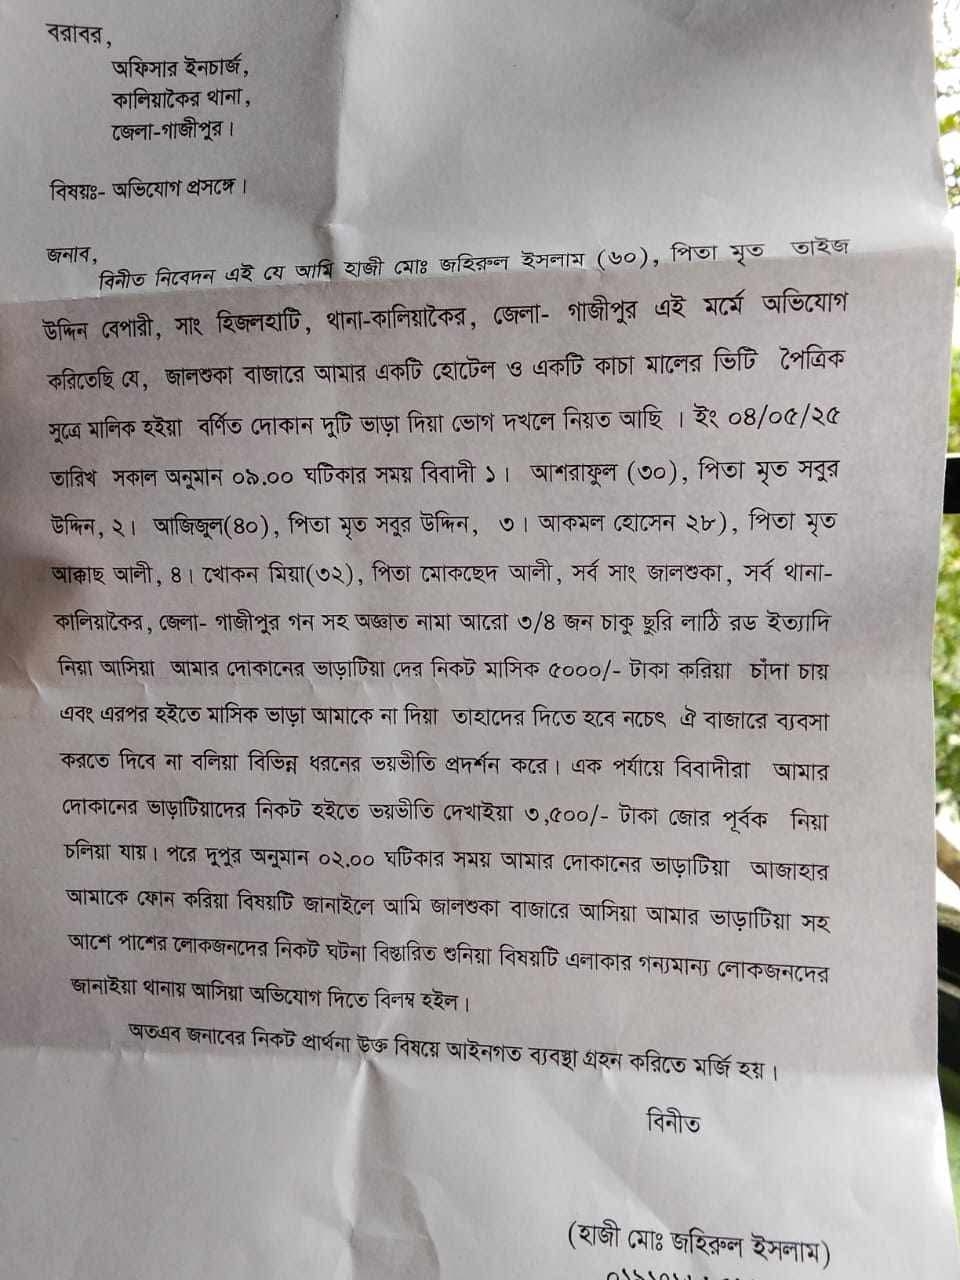 বরাবর,
অফিসার ইনচার্জ,
কালিয়াকৈর থানা,
জেলা-গাজীপুর।
বিষয়ঃ- অভিযোগ প্রসঙ্গে।
জনাব,
বিনীত নিবেদন এই যে আমি হাজী মোঃ জহিরুল ইসলাম (৬০), পিতা মৃত তাইজ
উদ্দিন বেপারী, সাং হিজলহাটি, থানা-কালিয়াকৈর, জেলা- গাজীপুর এই মর্মে অভিযোগ
করিতেছি যে, জালশুকা বাজারে আমার একটি হোটেল ও একটি কাচা মালের ভিটি পৈত্রিক
সূত্রে মালিক হইয়া বর্ণিত দোকান দুটি ভাড়া দিয়া ভোগ দখলে নিয়ত আছি । ইং ০৪/০৫/২৫
তারিখ সকাল অনুমান ০৯.০০ ঘটিকার সময় বিবাদী ১। আশরাফুল (৩০), পিতা মৃত সবুর
উদ্দিন, ২। আজিজুল(৪০), পিতা মৃত সবুর উদ্দিন, ৩। আকমল হোসেন ২৮), পিতা মৃত
আক্কাছ আলী, ৪। খোকন মিয়া(৩২), পিতা মোকছেদ আলী, সর্ব সাং জালশুকা, সর্ব থানা-
কালিয়াকৈর, জেলা- গাজীপুর গন সহ অজ্ঞাত নামা আরো ৩/৪ জন চাকু ছুরি লাঠি রড ইত্যাদি
নিয়া আসিয়া আমার দোকানের ভাড়াটিয়া দের নিকট মাসিক ৫০০০/- টাকা করিয়া চাঁদা চায়
এবং এরপর হইতে মাসিক ভাড়া আমাকে না দিয়া তাহাদের দিতে হবে নচেৎ ঐ বাজারে ব্যবসা
করতে দিবে না বলিয়া বিভিন্ন ধরনের ভয়ভীতি প্রদর্শন করে। এক পর্যায়ে বিবাদীরা আমার
দোকানের ভাড়াটিয়াদের নিকট হইতে ভয়ভীতি দেখাইয়া ৩,৫০০/- টাকা জোর পূর্বক নিয়া
চলিয়া যায়। পরে দুপুর অনুমান ০২.০০ ঘটিকার সময় আমার দোকানের ভাড়াটিয়া আজাহার
আমাকে ফোন করিয়া বিষয়টি জানাইলে আমি জালশুকা বাজারে আসিয়া আমার ভাড়াটিয়া সহ
আশে পাশের লোকজনদের নিকট ঘটনা বিস্তারিত শুনিয়া বিষয়টি এলাকার গন্যমান্য লোকজনদের
জানাইয়া থানায় আসিয়া অভিযোগ দিতে বিলম্ব হইল।
অতএব জনাবের নিকট প্রার্থনা উক্ত বিষয়ে আইনগত ব্যবস্থা গ্রহন করিতে মর্জি হয়।
বিনীত
(হাজী মোঃ জহিরুল ইসলাম)